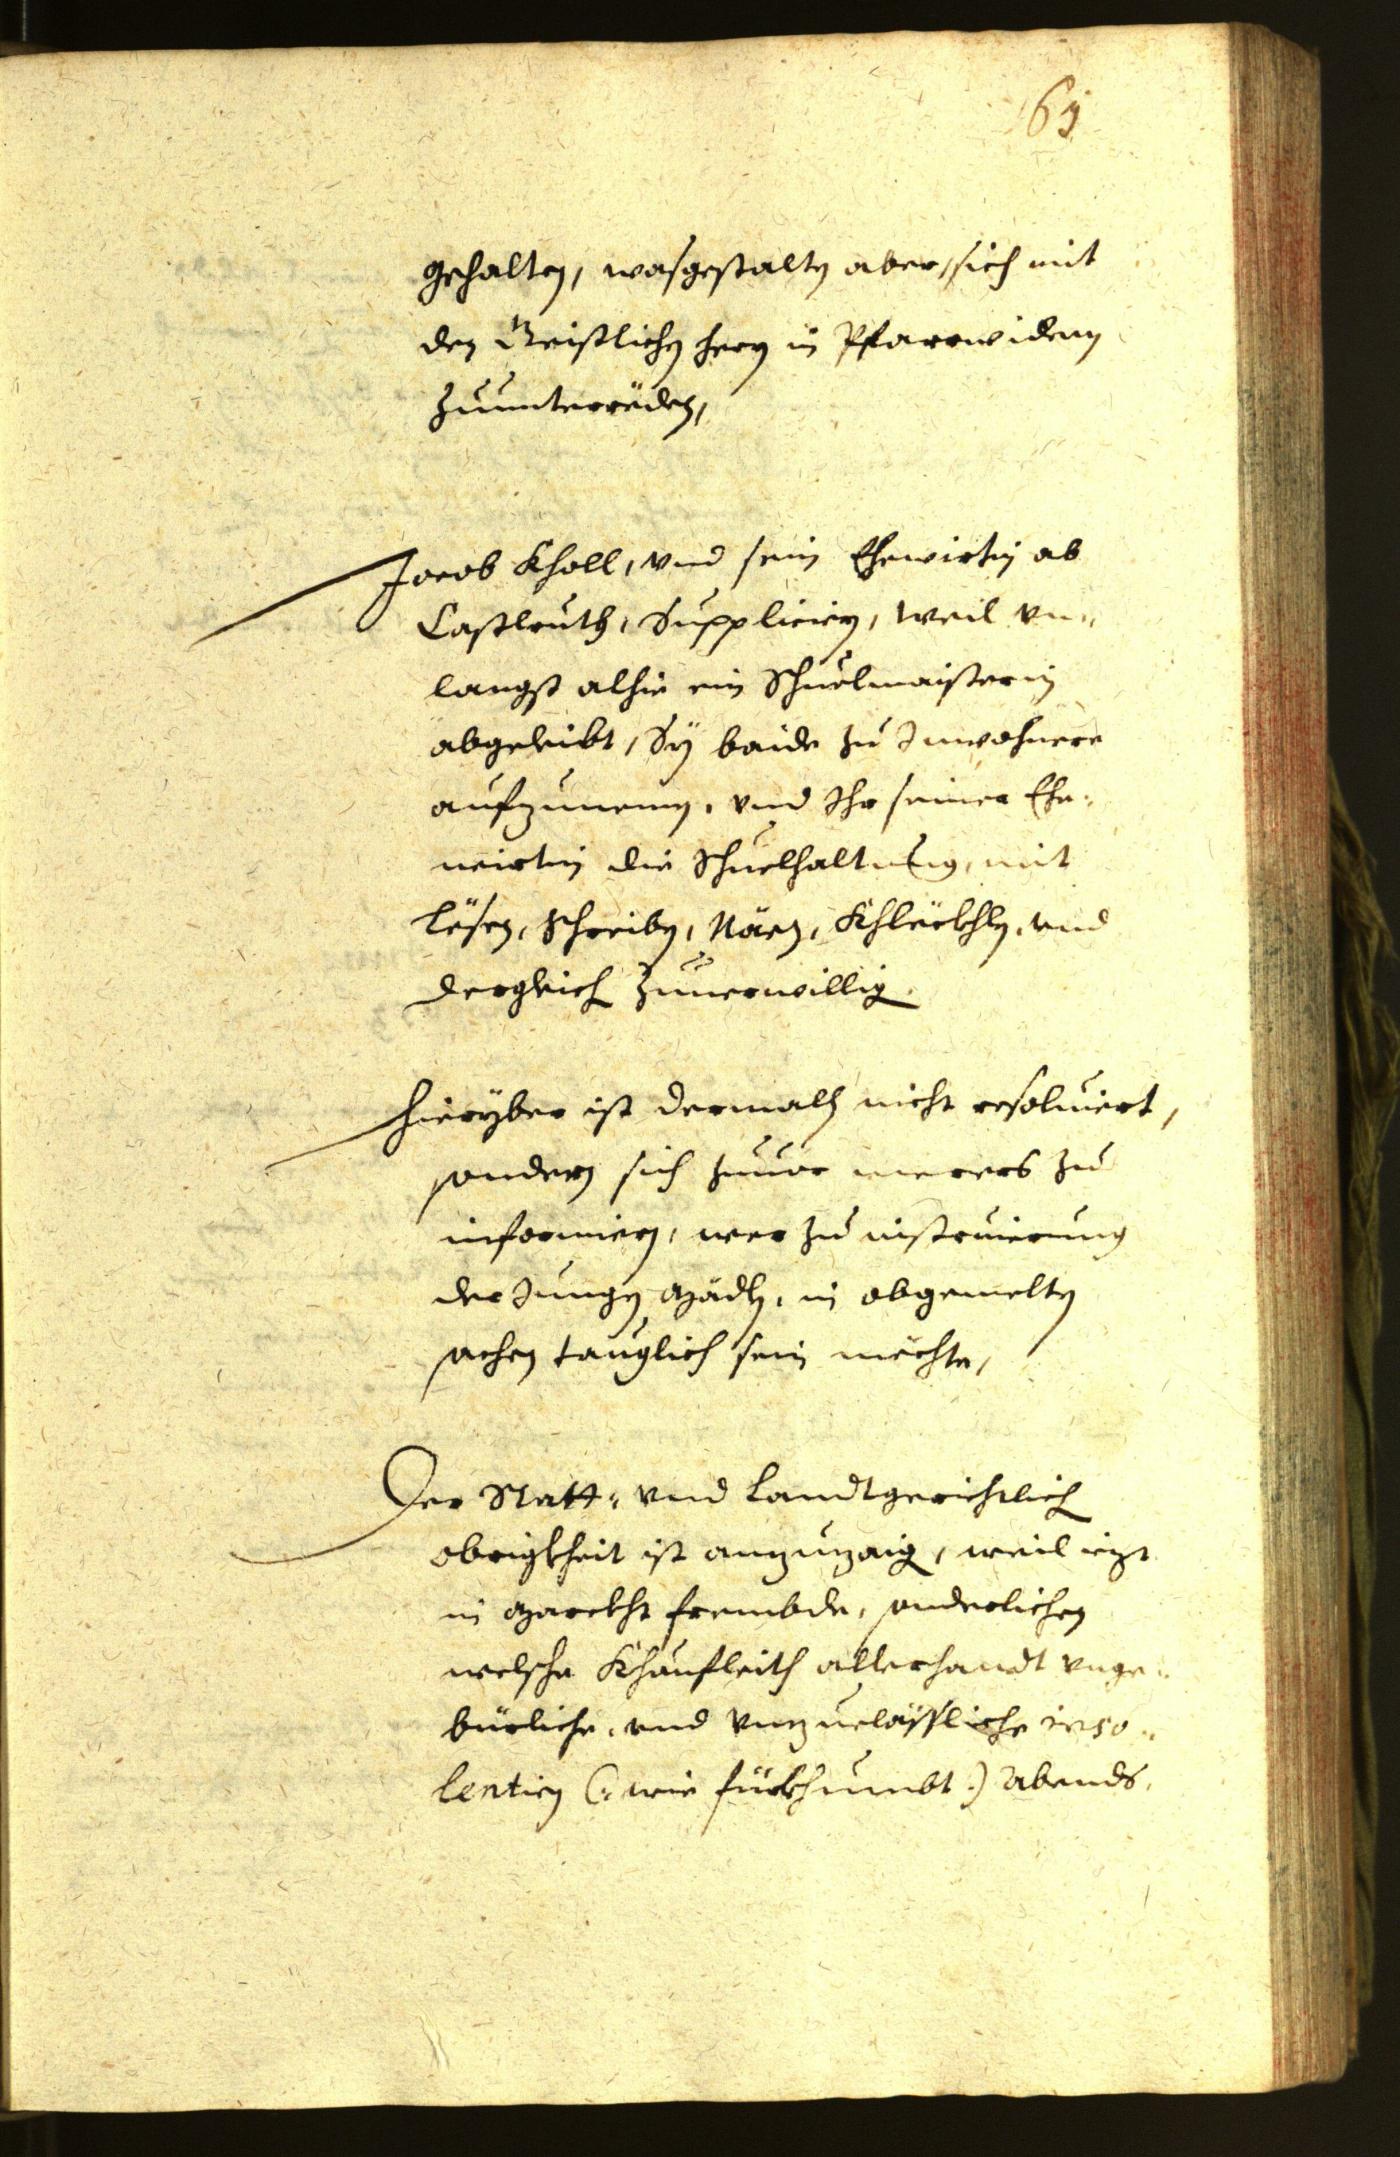 69
gehalten, wasgestalten aber, sich mit
den Geistlichen hern in Pfarrwidem
zuunterröden,
Jacob Kholl, vnd sein Ehewirtin ab
Castlruth, Supplicirn, weil vn-
langst alhie ein Schuelmaisterin
abgeleibt, Sÿ baide zu Inwohnere
aufzunemen, vnd Ihr seiner Ehe-
wirtin die Schuelhaltung, mit
lösen, Schreiben, Näen, Khleckhlen, vnd
dergleich zuuerwillig.
Hierÿber ist dermalß nicht resoluiert,
sondern sich zuuor merers zu
informiern, wer zu instruierung
der Jungen Mädlen, in obgemelten
sachen tauglich sein möchte,
Der Statt- vnd Landtgerichtlich
obrigkheit ist anzuzaigen, weil iezt
in Marckht frembde, sonderlichen
welsche Khaufleith allerhandt vnge-
bürliche, vnd vnzuelässliche inso-
lentien (: wie fürkhumbt :) Abends,